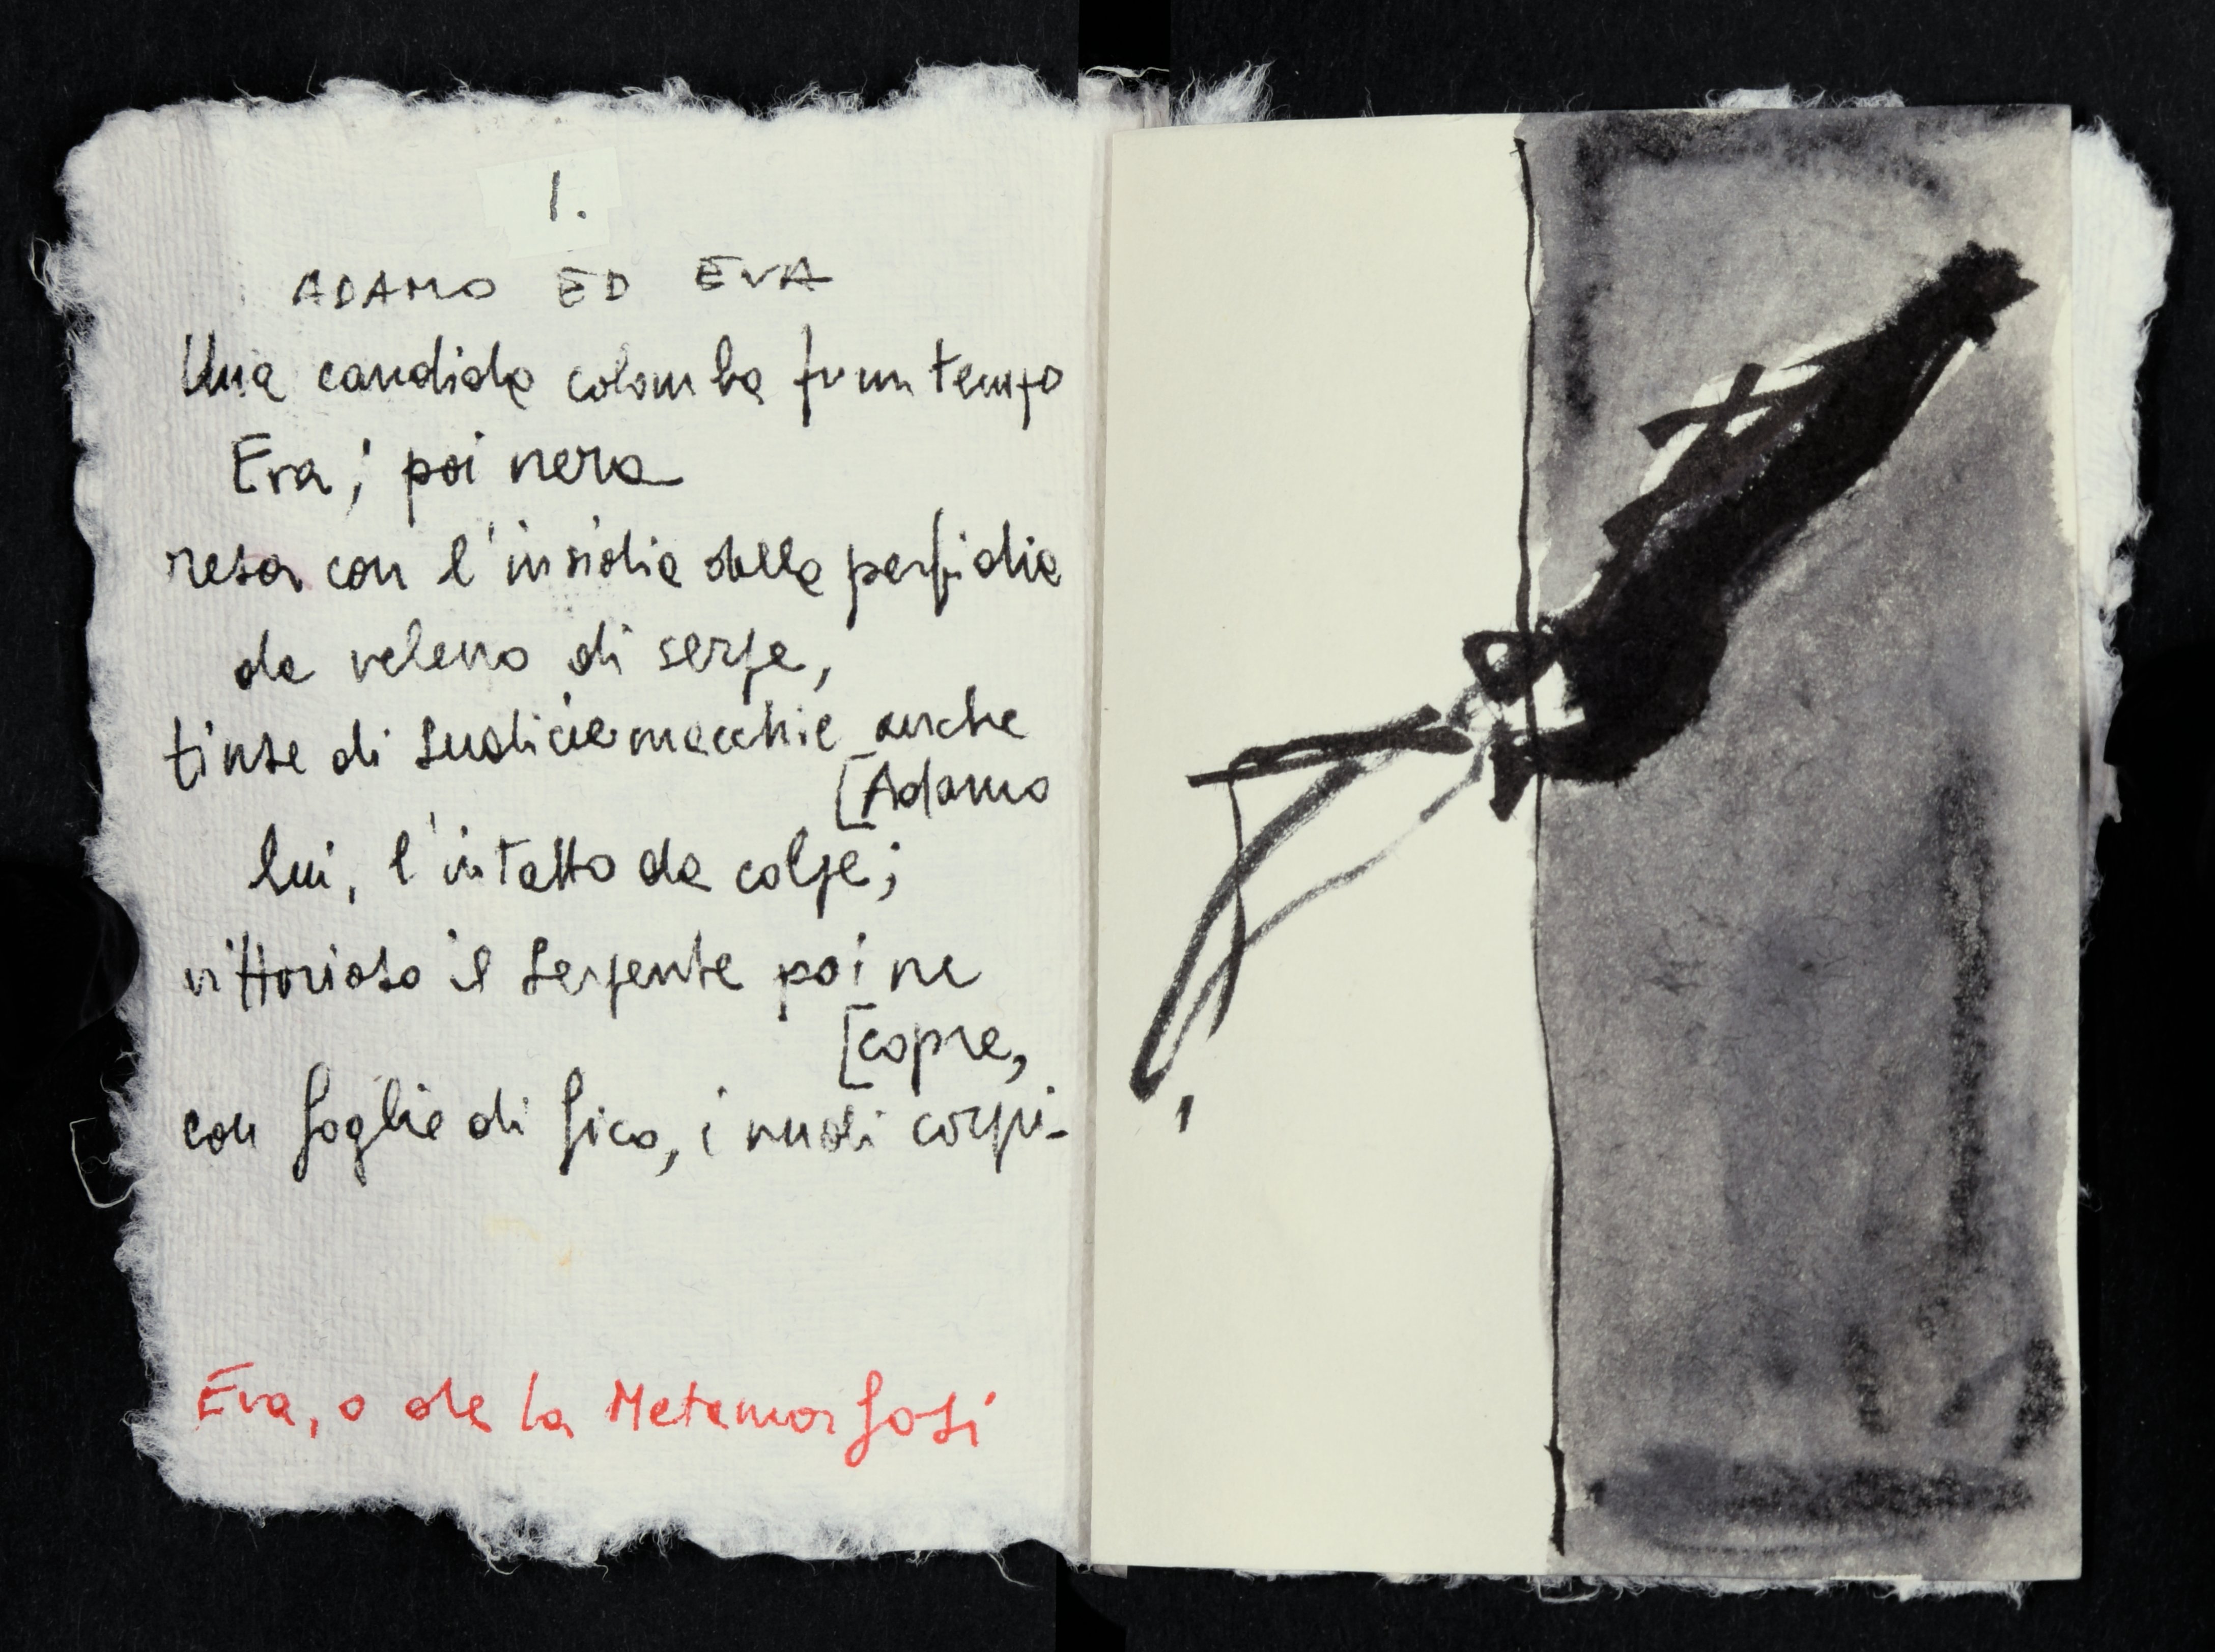 1.
ADAMO ED EVA
Una candida colomba fu un tempo
Eva; poi nera
resa con l'insidia della perfidia
da veleno di serpe,
tinse di sudicie macchie anche
[Adamo
lui, l'intatto da colpe;
vittorioso il serpente poi ne
[copre,
con foglie di fico, i nudi corpi.
Eva, o de la Metamorfosi